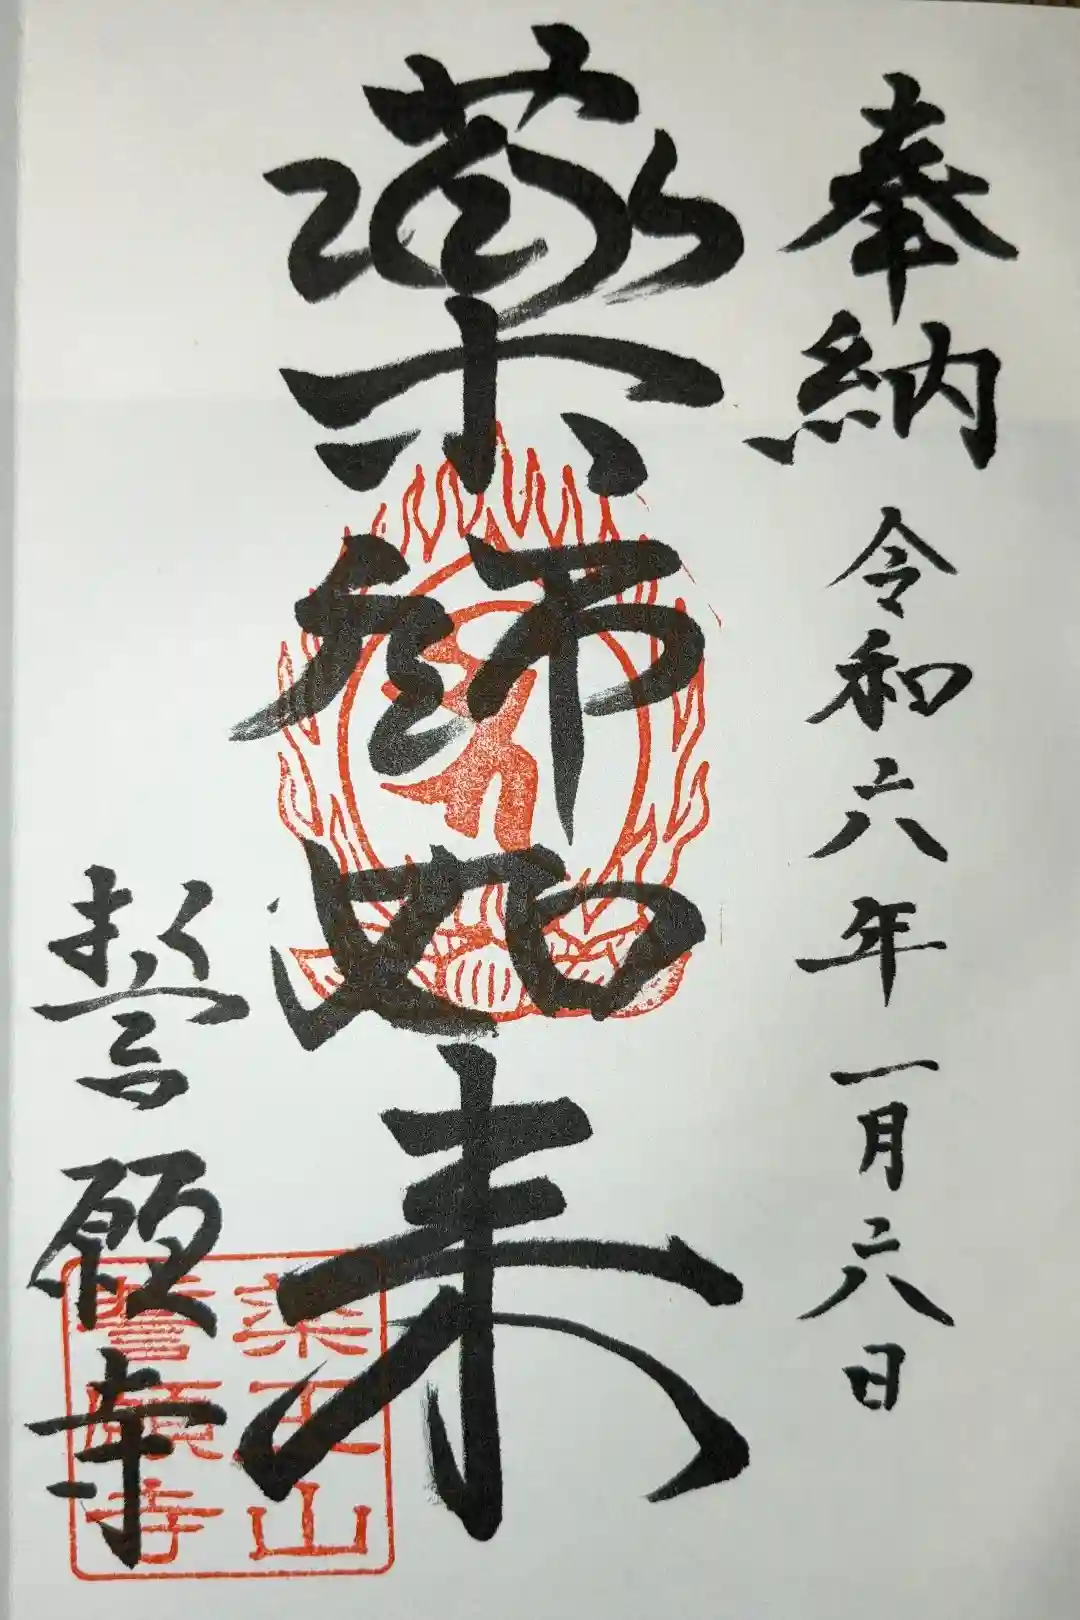 奉納
令和六年一月六日
薬師如来
誓願寺
薬王山
誓願寺